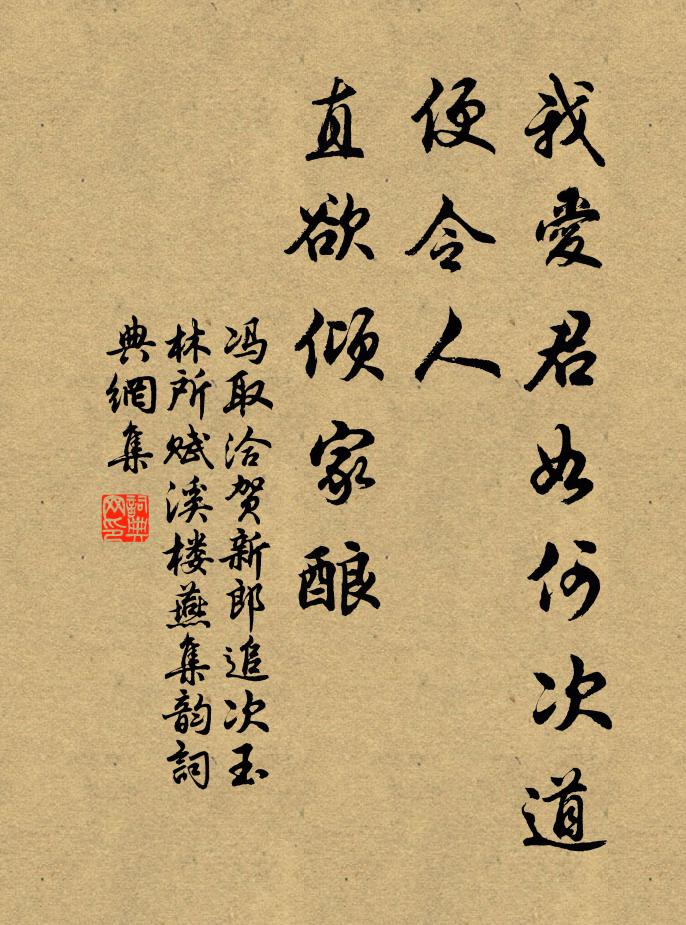 我愛君如何次道
便令人
直欲倾家酿
冯取洽贺新郎追次玉
林所赋溪楼燕集韵詞
典網集
詞典网印